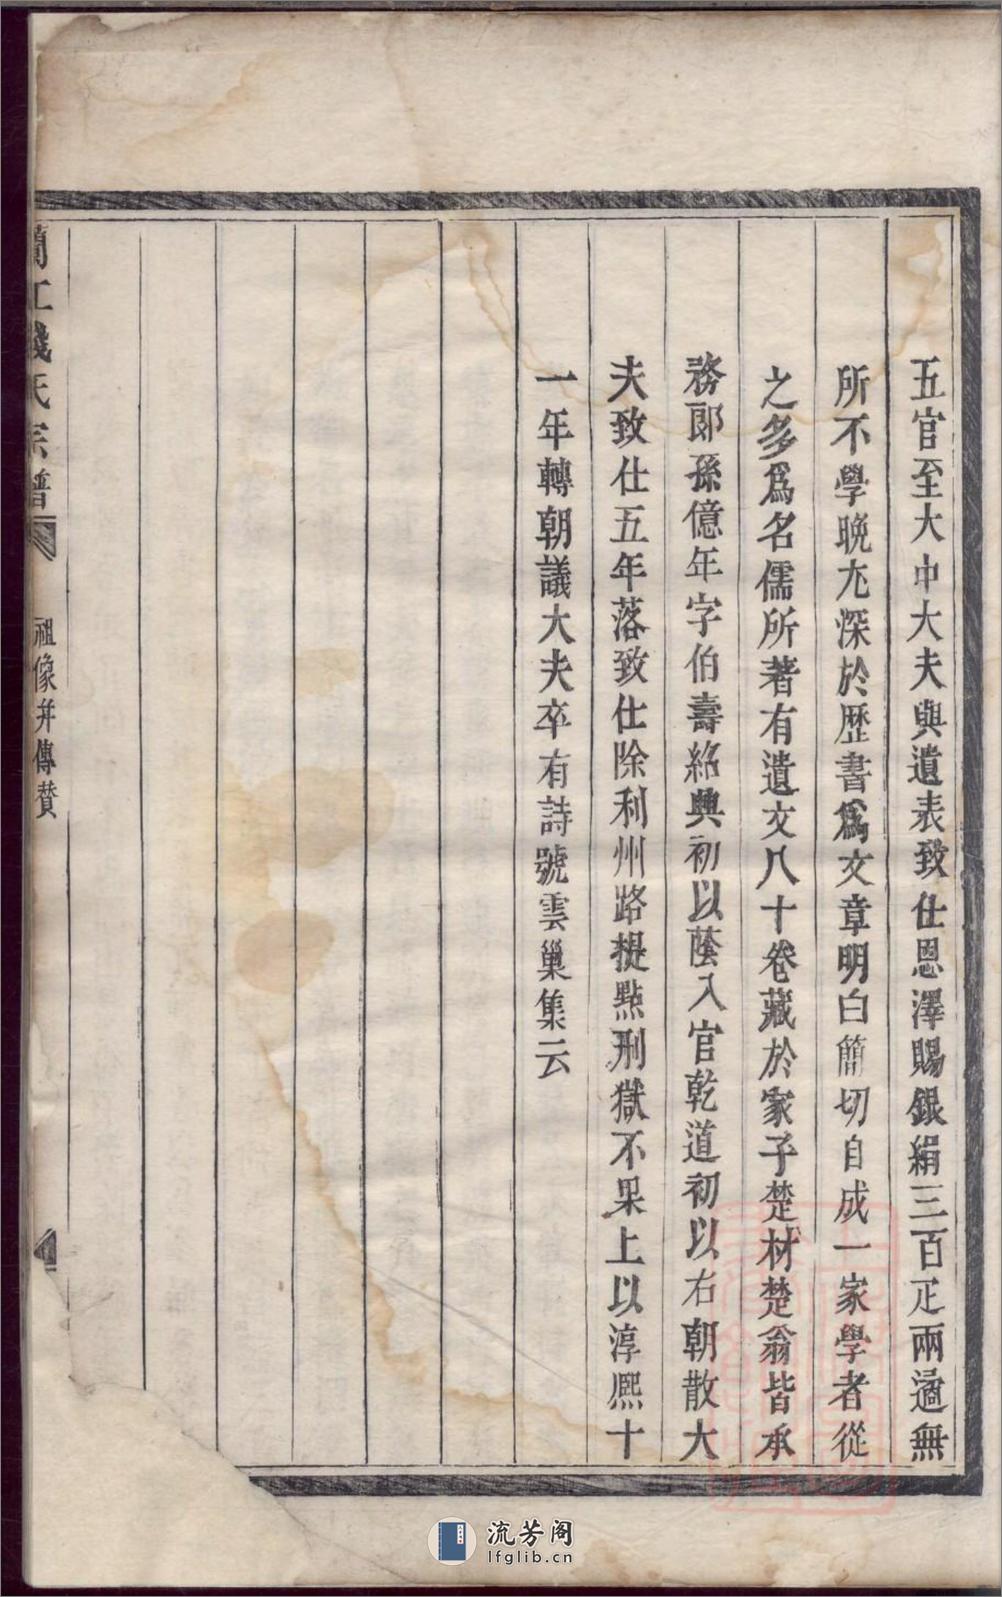 五官至大中大夫與遺表致仕恩澤賜銀絹三百疋兩適無
所不學晚尢深於歷書爲文章明白簡切自成一家學者從
之多爲名儒所著有遺文八十卷藏於家子楚材楚翁皆承
務郎孫億年字伯壽紹興初以蔭入官乾道初以右朝散大
夫致仕五年落致仕除利州路提點刑獄不果上以淳熈十
一年轉朝議大夫卒有詩號雲巢集云
蘭江錢氏宗譜
祖像并傳贊
流芳阁
lfglib.cn